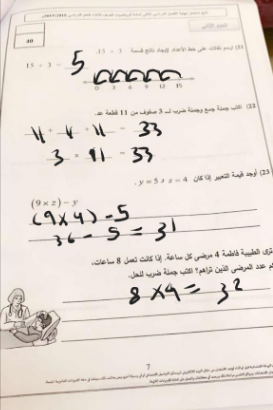 40
21) ارسم قفزات على خط الأعداد لإيجاد ناتج قسمة 3 ÷ 15.
15 ÷ 3 = 5
0 3 6 9 12 15
22) اكتب جملة جمع وجملة ضرب لـ 3 صفوف من 11 قطعة عد.
11 + 11 + 11 = 33
3 × 11 = 33
23) أوجد قيمة التعبير إذا كان z = 4 و y = 5.
(9 × z) – y
(9×4) - 5
36 - 5 = 31
ترى الطبيبة فاطمة 4 مرضى كل ساعة. إذا كانت تعمل 8 ساعات،
عدد المرضى الذين تراهم؟ اكتب جملة ضرب للحل.
8 × 4 = 32
7